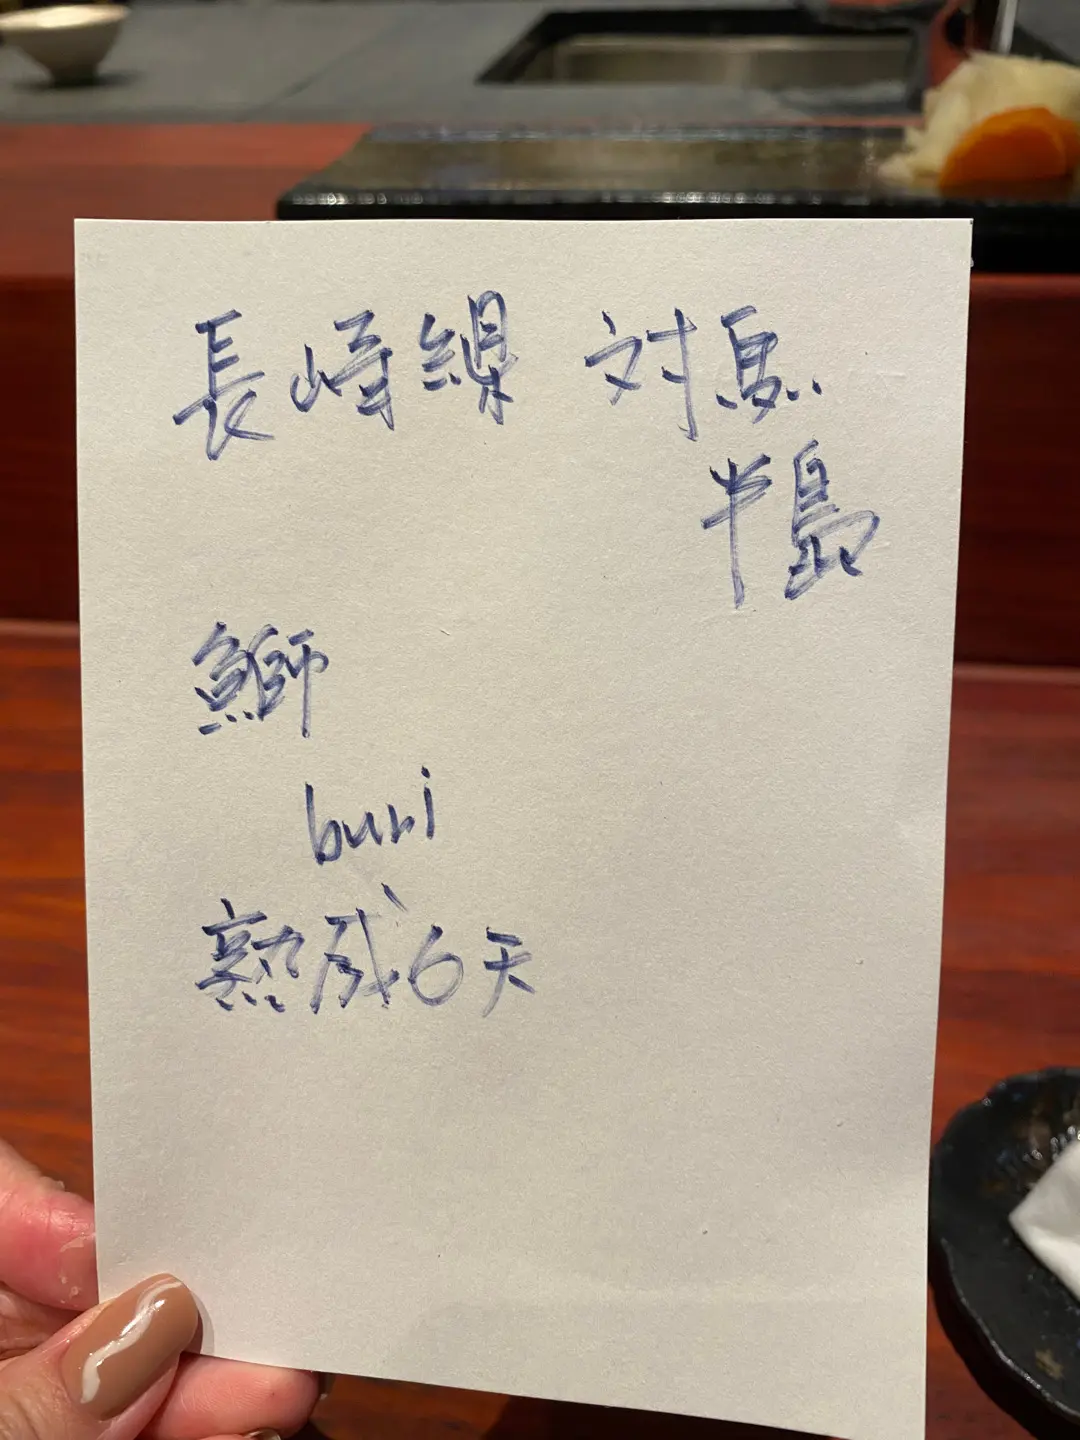 長崎縣 対馬
半島
鰤
buri
熟成6天